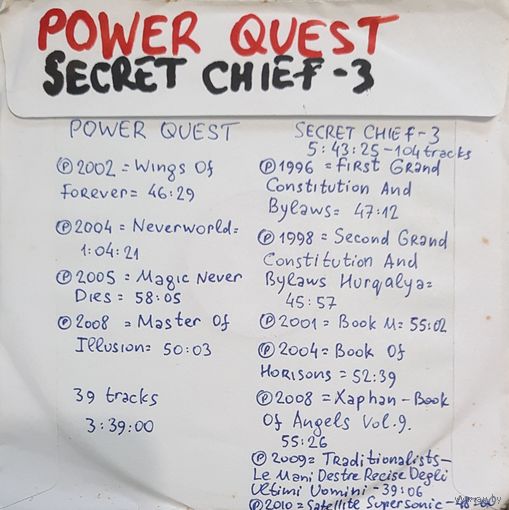 POWER QUEST
SECRET CHIEF-3
POWER QUEST
Ⓟ 2002 = Wings Of
Forever = 46:29
Ⓟ 2004 = Neverworld =
1:04:21
Ⓟ 2005 = Magic Never
Dies = 58:05
Ⓟ 2008 = Master Of
Illusion = 50:03
39 tracks
3:39:00
SECRET CHIEF-3
5:43:25 - 104 tracks
Ⓟ 1996 = First Grand
Constitution And
Bylaws = 47:12
Ⓟ 1998 = Second Grand
Constitution And
Bylaws Hurqalya =
45:57
Ⓟ 2001 = Book M = 55:02
Ⓟ 2004 = Book Of
Horisons = 52:39
Ⓟ 2008 = Xaphan - Book
Of Angels Vol.9.
55:26
Ⓟ 2009 = Traditionalists -
Le Mani Destre Recise Degli
Ultimi Uomini - 39:06
Ⓟ 2010 = Satellite Supersonic -